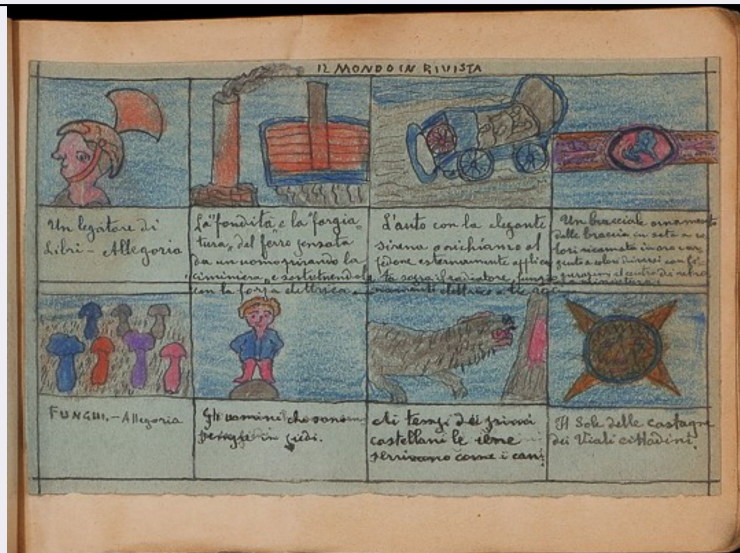 IL MONDO IN RIVISTA
Un legatore di
Libri - Allegoria
La "fondita" e la "forgia-
tura" del ferro pensata
da un uomo girando la
ciminiera, e sostituendola
con la forza elettrica
L'auto con la elegante
sirena o richiamo al
pedone esternamente
sopra il radiatore
Un bracciale ornamento
delle braccia in seta a co-
lori ricamata in oro e ar-
gento a colori diversi con fi-
gurazioni al centro
FUNGHI. - Allegoria
Gli uomini che sono
in piedi.
Ai tempi dei primi
castellani le iene
servivano come i cani.
Il Sole delle castagne
dei Viali cittadini.